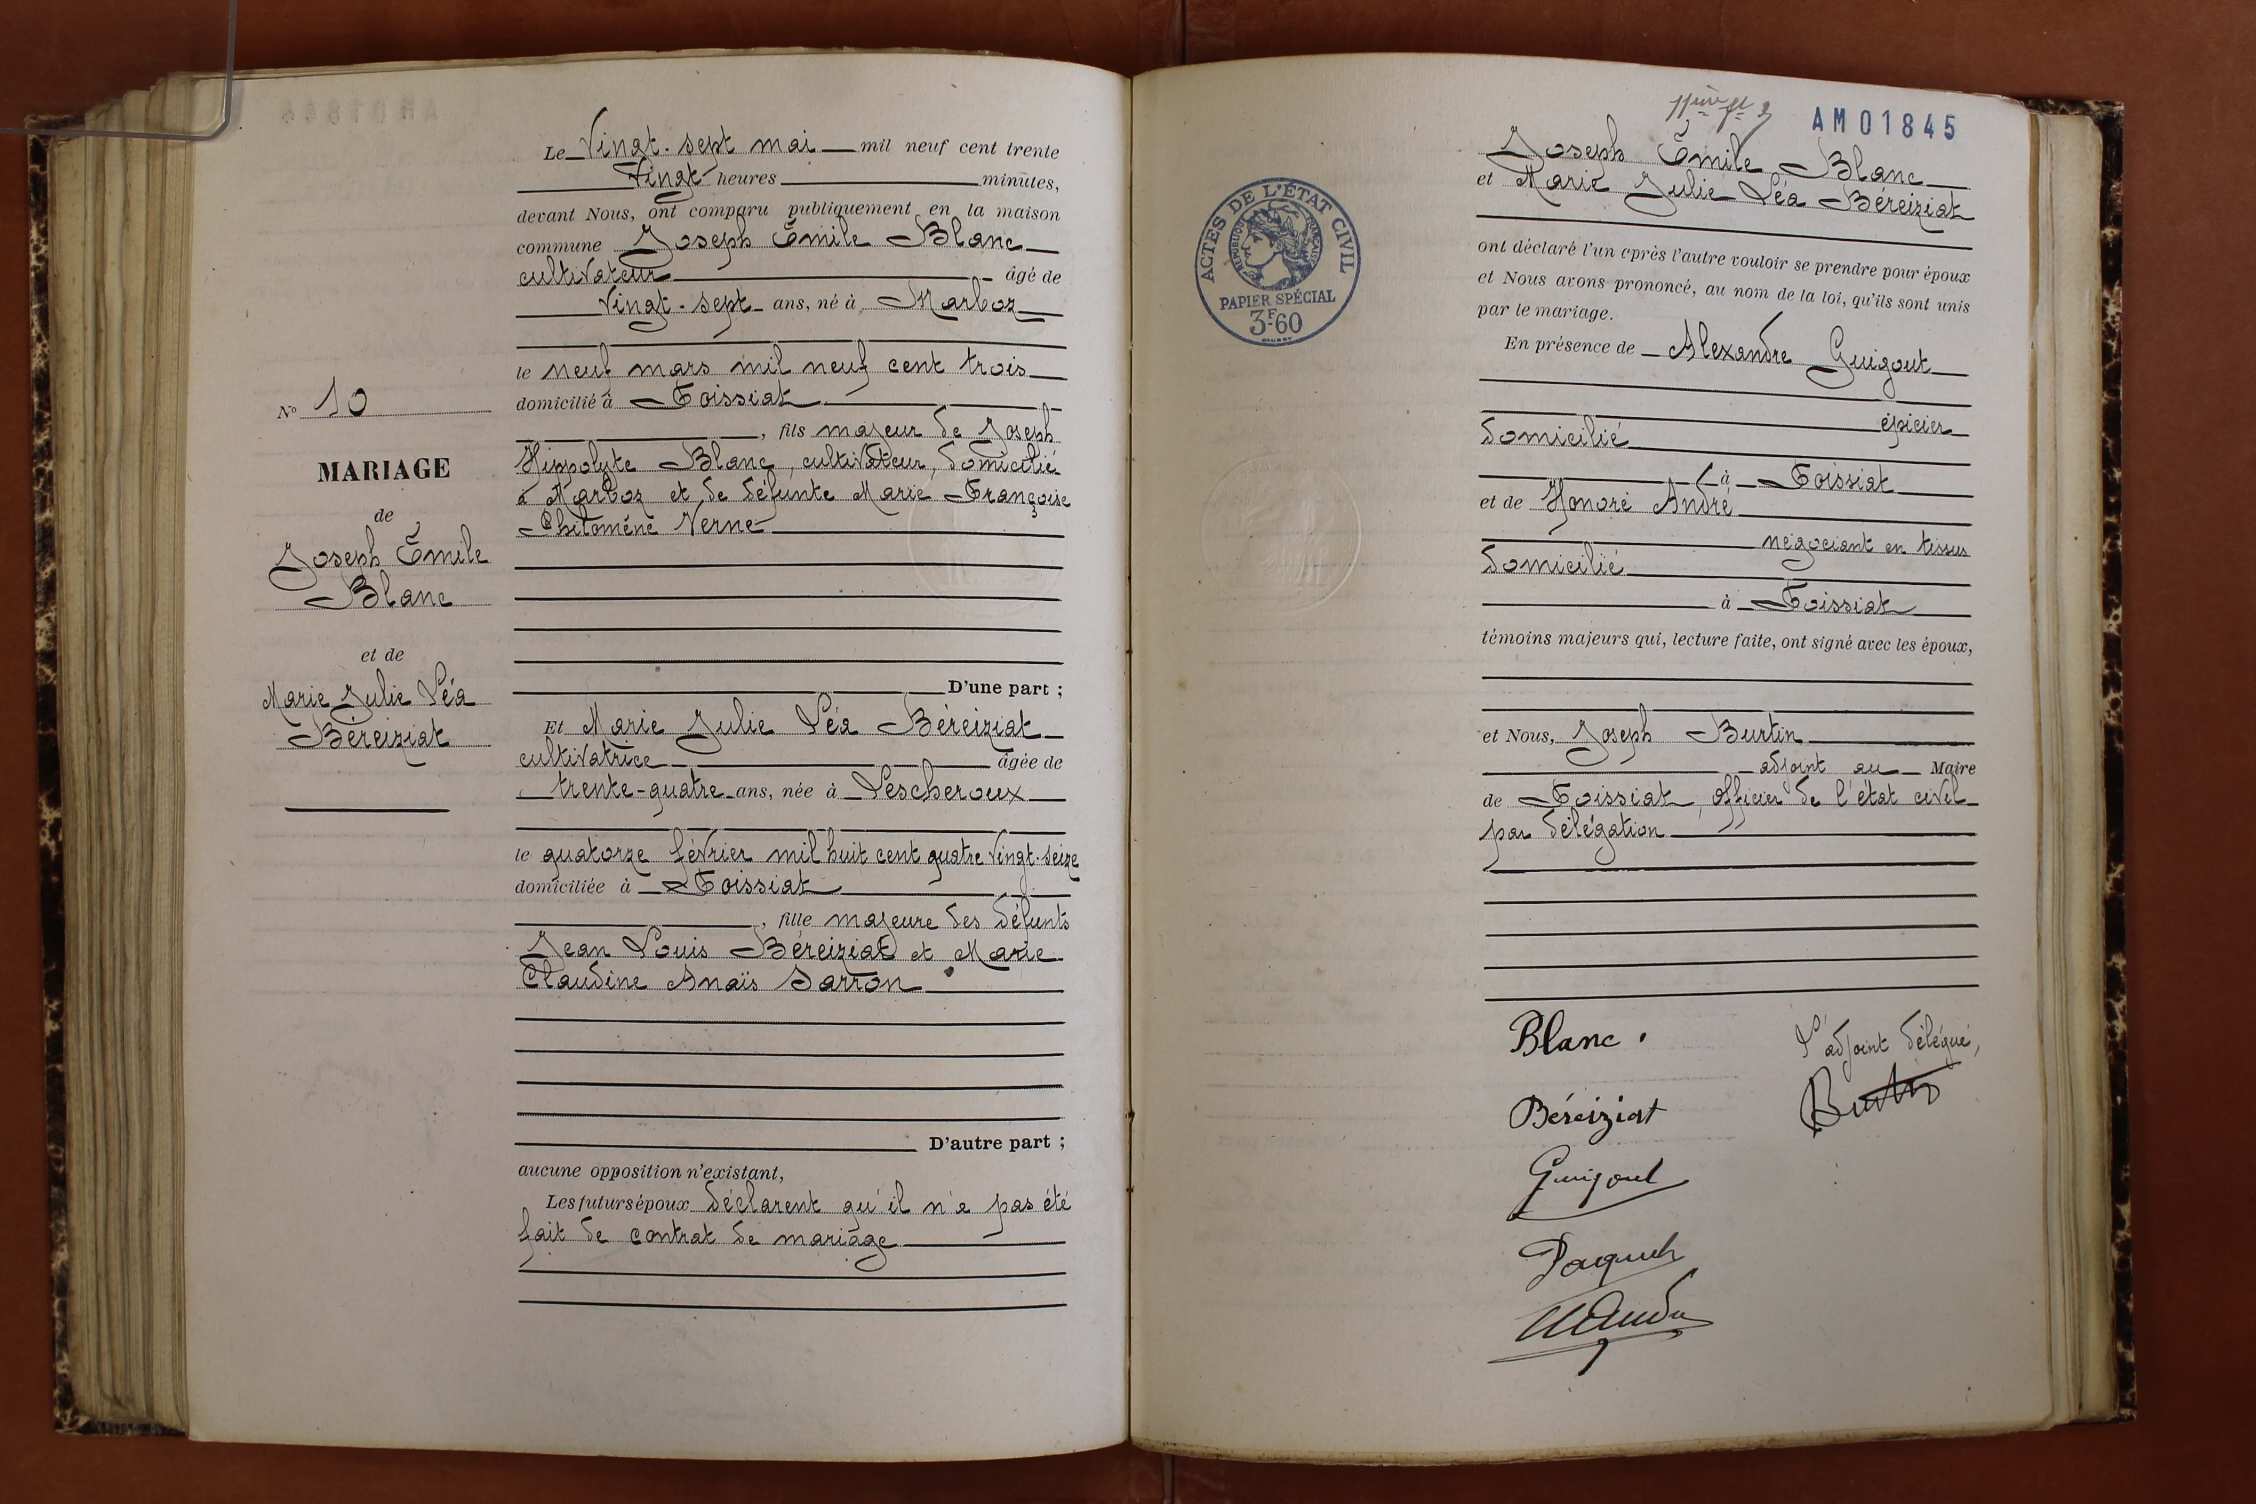 Le Vingt-sept mai mil neuf cent trente
Vingt heures minutes,
devant Nous, ont comparu publiquement en la maison
commune Joseph Émile Blanc
cultivateur âgé de
vingt-sept ans, né à Marboz
le neuf mars mil neuf cent trois
domicilié à Foissiat
, fils majeur de Joseph
Hippolyte Blanc, cultivateur, domicilié
à Marboz et de défunte Marie Françoise
Philomène Verne
D'une part ;
Et Marie Julie Léa Béreiziat
cultivatrice âgée de
trente-quatre ans, née à Lescheroux
le quatorze février mil huit cent quatre vingt-seize
domiciliée à Foissiat
, fille majeure des défunts
Jean Louis Béreiziat et Marie
Claudine Anaïs Sarron
D'autre part ;
aucune opposition n'existant,
Les futurs époux déclarent qu'il n'a pas été
fait de contrat de mariage
N° 10
MARIAGE
de
Joseph Émile
Blanc
et de
Marie Julie Léa
Béreiziat
AM01845
Joseph Émile Blanc
et Marie Julie Léa Béreiziat
ont déclaré l'un après l'autre vouloir se prendre pour époux
et Nous avons prononcé, au nom de la loi, qu'ils sont unis
par le mariage.
En présence de Alexandre Guigout
épicier
domicilié
à Foissiat
et de Honoré André
négociant en tissus
domicilié
à Foissiat
témoins majeurs qui, lecture faite, ont signé avec les époux,
et Nous, Joseph Burtin
adjoint au Maire
de Foissiat, officier de l'état civil
par délégation
Blanc.
L'adjoint délégué,
Burtin
Béreiziat
Guigout
ACTES DE L'ÉTAT CIVIL
RÉPUBLIQUE FRANÇAISE
PAPIER SPÉCIAL
3F-60